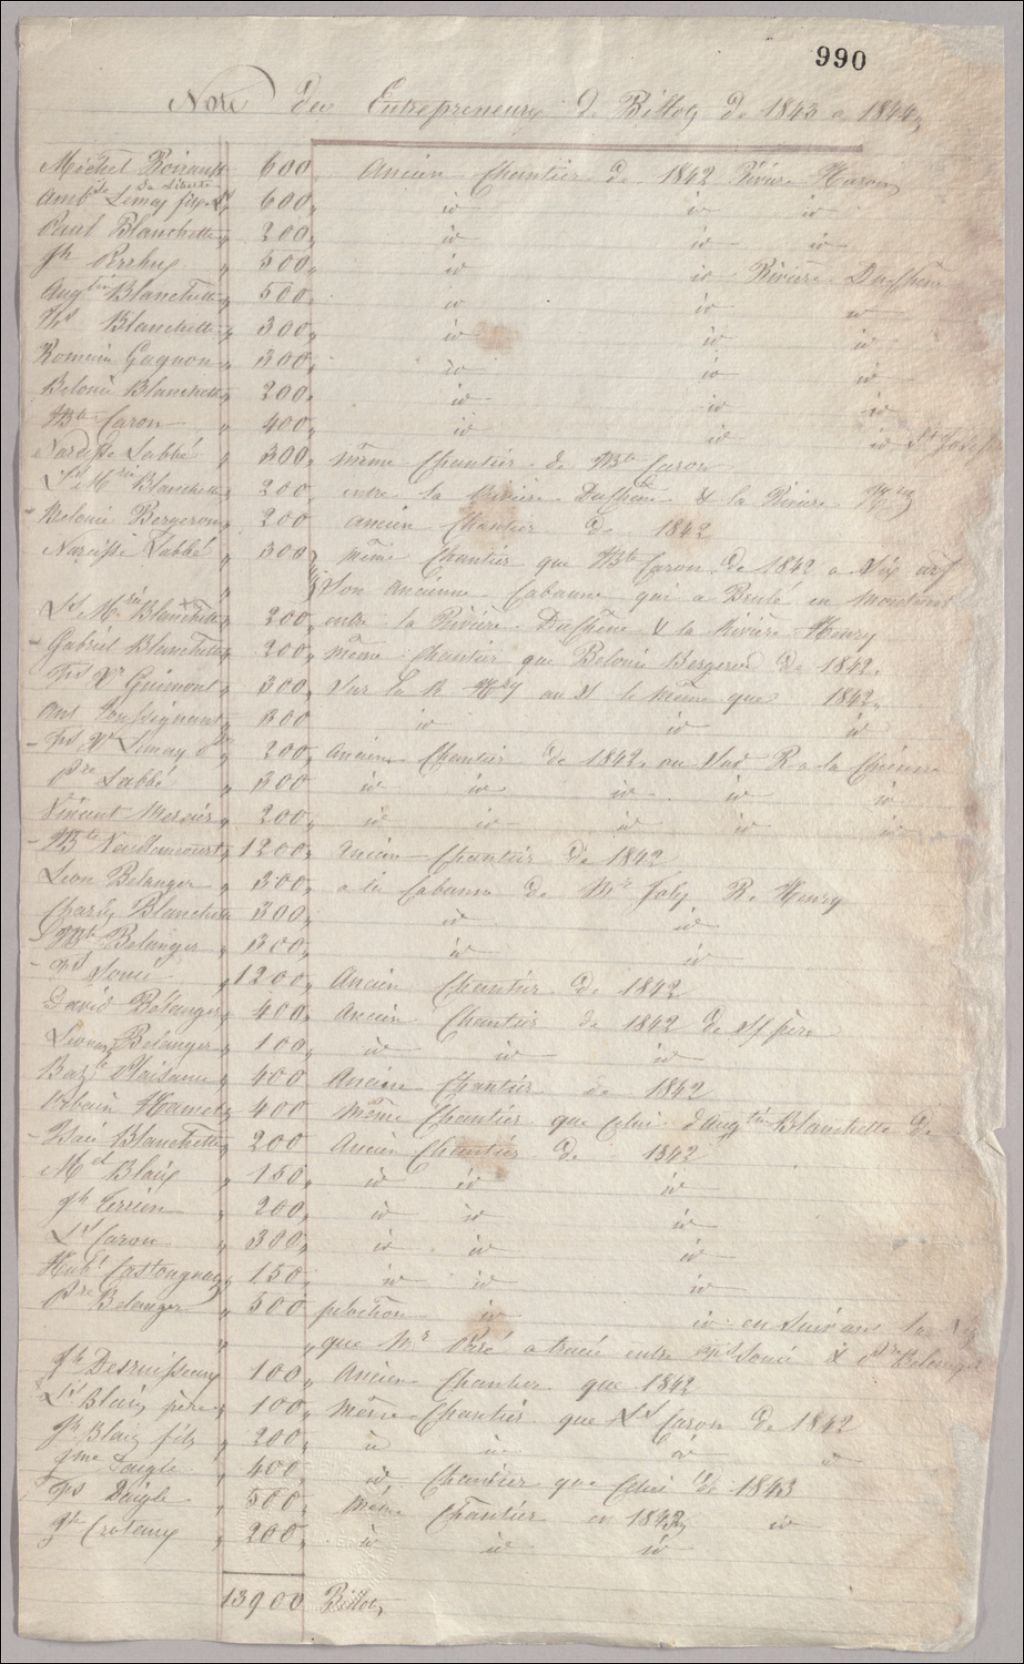 990
Note des Entrepreneurs de Billots de 1843 a 1844
Michel Boirault 600 Ancien Chantier de 1842 Rivière Huron
Amb Lemay fils 600 id id id
Paul Blanchette 200 id id id
Jh 500 id id Rivière DuChene
Augtin Blanchette 500 id id id
Ths Blanchette 300 id id id
Romain Gagnon 300 id id id
Belonie Blanchette 200 id id id
JBte Caron 400 id id id St Joseph
Narcisse Labbé 300 même Chantier de JBte Caron
Blanchette 200 entre la Rivière DuChene & la Rivière Hry
Belonie Bergeron 200 ancien Chantier de 1842
Narcisse Labbé 300 même Chantier que JBte Caron de 1842 a dix arp
" " Son ancienne Cabanne qui a Brulé en montant
Blanchette 200 entre la Rivière DuChene & la Rivière Henry
Gabriel Blanchette 200 même Chantier que Belonie Bergeron de 1842
Frs Xr Guimont 300 Sur la R Hry au S le même que 1842
Ant Toussignant 300 id id id
Frs Xr Lemay 200 ancien Chantier de 1842 au Sud R a la Chienne
Pre Labbé 300 id id id id id
Vincent Mercier 200 id id id id id
JBte Vaillancourt 1200 Ancien Chantier de 1842
Leon Belanger 300 a la Cabanne de Mr Joly R. Henry
Charles Blanchette 300 id id
JBte Belanger 300 id id
Frs 1200 Ancien Chantier de 1842
David Bélanger 400 Ancien Chantier de 1842 de père
Belanger 100 id id id
Baz Plaisance 400 Ancien Chantier de 1842
Urbain Hamel 400 même Chantier que Celui d'Augtin Blanchette de
Isaïe Blanchette 200 Ancien Chantier de 1842
Mel Blais 150 id id id
Jh Terrien 200 id id id
Ls Caron 300 id id id
Hubt Castonguay 150 id id id
Pre Belanger 500 id id en Suivant la
" " que Mr a tracée entre Frs & Pre Belanger
Jh Desruisseaux 100 Ancien Chantier que 1842
Ls Blais père 100 même Chantier que Ls Caron de 1842
Jh Blais fils 200 id id id id
Daigle 400 id Chantier que Celui de 1843
Frs Daigle 500 même Chantier en 1842 id
Jh Croteau 200 id id id
13900 Billots